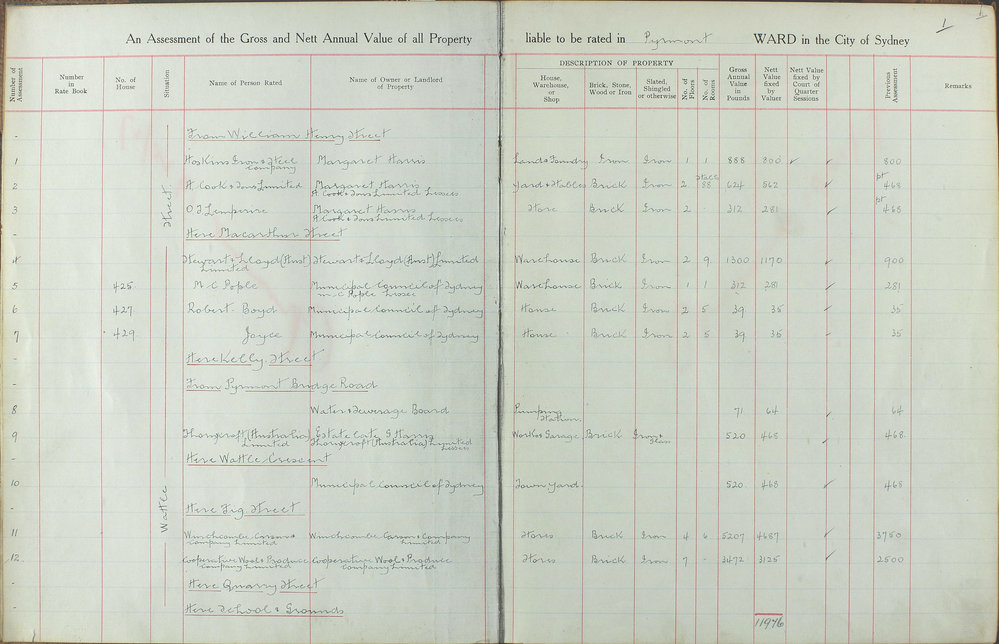 1 1
An Assessment of the Gross and Nett Annual Value of all Property liable to be rated in Pyrmont WARD in the City of Sydney
DESCRIPTION OF PROPERTY
Number of Assessment Number in Rate Book No. of House Situation Name of Person Rated Name of Owner or Landlord of Property House, Warehouse, or Shop Brick, Stone, Wood or Iron Slated, Shingled or otherwise No. of Floors No. of Rooms Gross Annual Value in Pounds Nett Value fixed by Valuer Nett Value fixed by Court of Quarter Sessions Previous Assessment Remarks
Wattle Street
From William Henry Street
1 Hoskins Iron & Steel Margaret Harris Land & Foundry Iron Iron 1 1 888 800 ✓ ✓ 800
Company
2 A Cook & Sons Limited Margaret Harris Yard & Stables Brick Iron 2 Stalls 88 624 562 ✓ pt 468
A Cook & Sons Limited Lessees
3 O J Lempriere Margaret Harris Store Brick Iron 2 - 312 281 ✓ pt 468
A Cook & Sons Limited Lessees
Here Macarthur Street
4 Stewart & Lloyd (Aust) Stewart & Lloyd (Aust) Limited Warehouse Brick Iron 2 9 1300 1170 ✓ 900
Limited
5 425 M C Pople Municipal Council of Sydney Warehouse Brick Iron 1 1 312 281 ✓ 281
M C Pople Lessee
6 427 Robert Boyd Municipal Council of Sydney House Brick Iron 2 5 39 35 ✓ 35
7 429 Joyce Municipal Council of Sydney House Brick Iron 2 5 39 35 ✓ 35
Here Kelly Street
From Pyrmont Bridge Road
8 Water & Sewerage Board Pumping Station 71 64 ✓ 64
9 Thornycroft (Australia) Estate late J Harris Works & Garage Brick Iron & Glass 520 468 ✓ 468
Limited Thornycroft (Australia) Limited Lessees
Here Wattle Crescent
10 Municipal Council of Sydney Town Yard 520 468 ✓ 468
Here Fig Street
11 Winchcombe Carson & Winchcombe Carson & Company Stores Brick Iron 4 6 5207 4687 ✓ 3750
Company Limited Limited
12 Cooperative Wool & Produce Cooperative Wool & Produce Stores Brick Iron 7 - 3472 3125 ✓ 2500
Company Limited Company Limited
Here Quarry Street
Here School & Grounds
11976